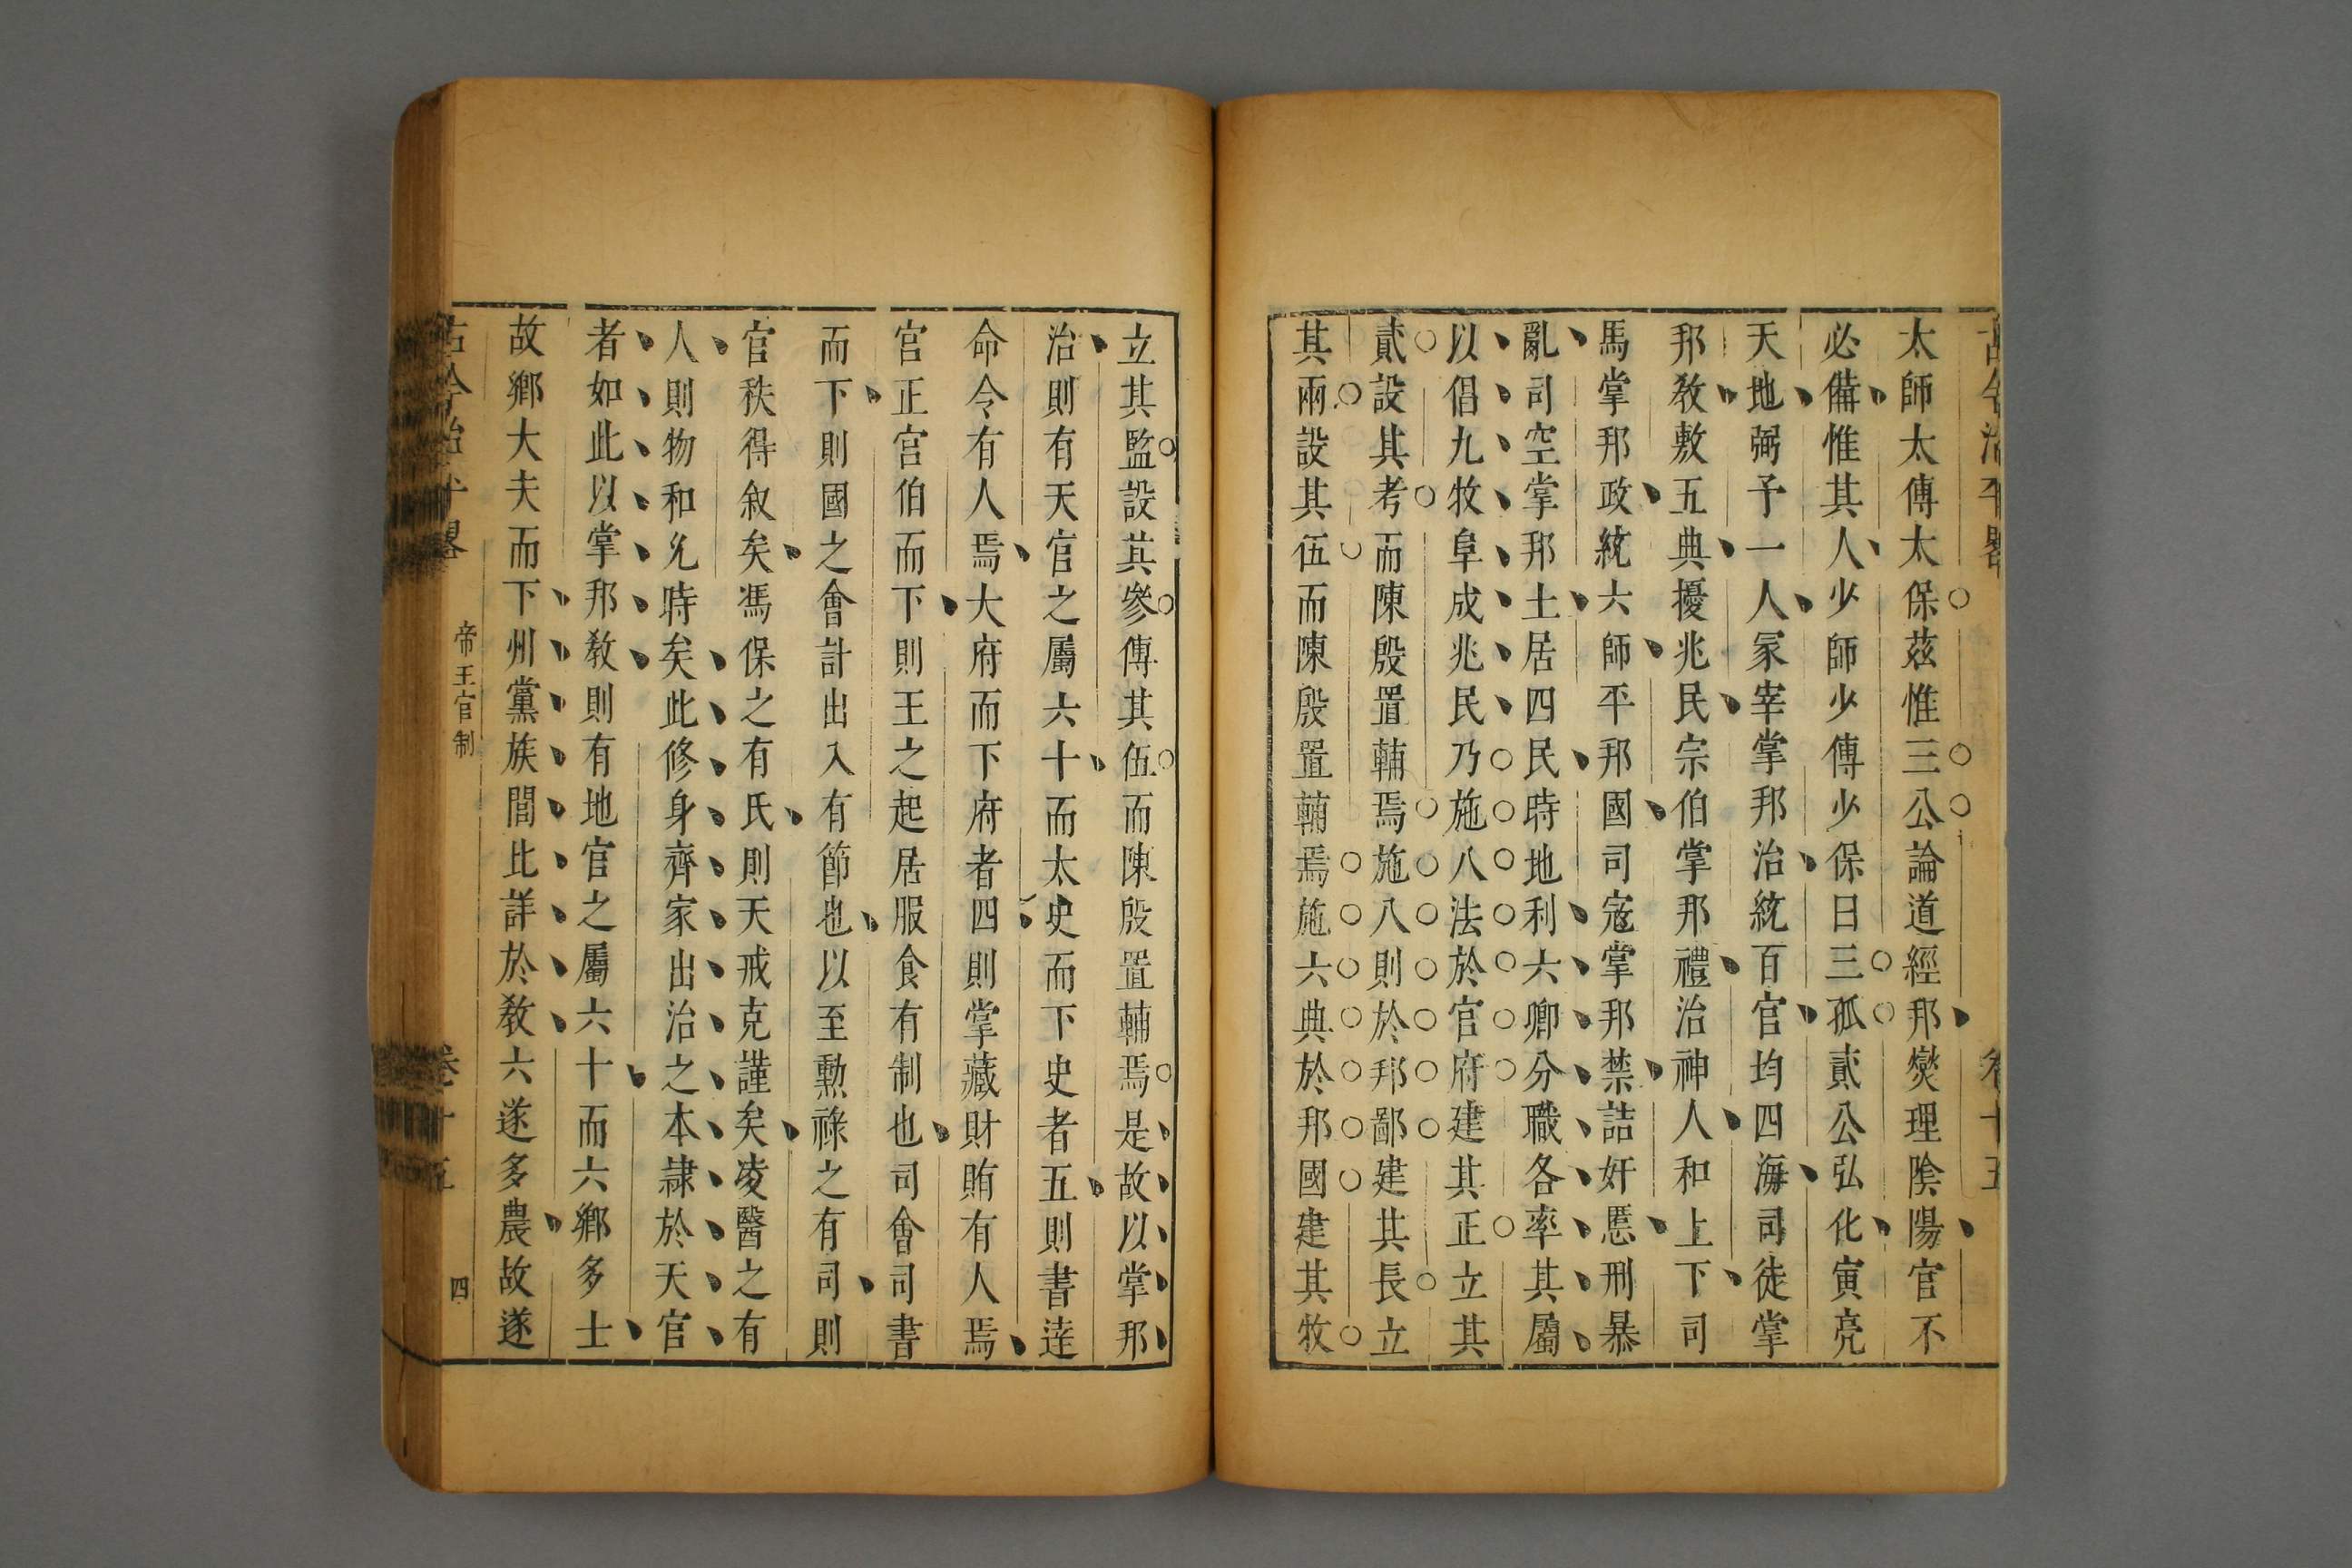 古今治平畧 卷十五
太師太傅太保茲惟三公論道經邦燮理陰陽官不
必備惟其人少師少傅少保曰三孤貳公弘化寅亮
天地弼予一人冢宰掌邦治統百官均四海司徒掌
邦敎敷五典擾兆民宗伯掌邦禮治神人和上下司
馬掌邦政統六師平邦國司宼掌邦禁詰奸慝刑暴
亂司空掌邦土居四民時地利六卿分職各率其屬
以倡九牧阜成兆民乃施八法於官府建其正立其
貳設其考而陳殷置輔焉施八則於邦鄙建其長立
其兩設其伍而陳殷置輔焉施六典於邦國建其牧
立其監設其參傅其伍而陳殷置輔焉是故以掌邦
治則有天官之屬六十而太史而下史者五則書逹
命令有人焉大府而下府者四則掌藏財賄有人焉
宮正宮伯而下則王之起居服食有制也司會司書
而下則國之會計出入有節也以至勳祿之有司則
官秩得敘矣馮保之有氏則天戒克謹矣凌醫之有
人則物和允時矣此修身齊家出治之本隷於天官
者如此以掌邦敎則有地官之屬六十而六鄉多士
故鄉大夫而下州黨族閭比詳於敎六遂多農故遂
古今治平畧 帝王官制 卷十五 四